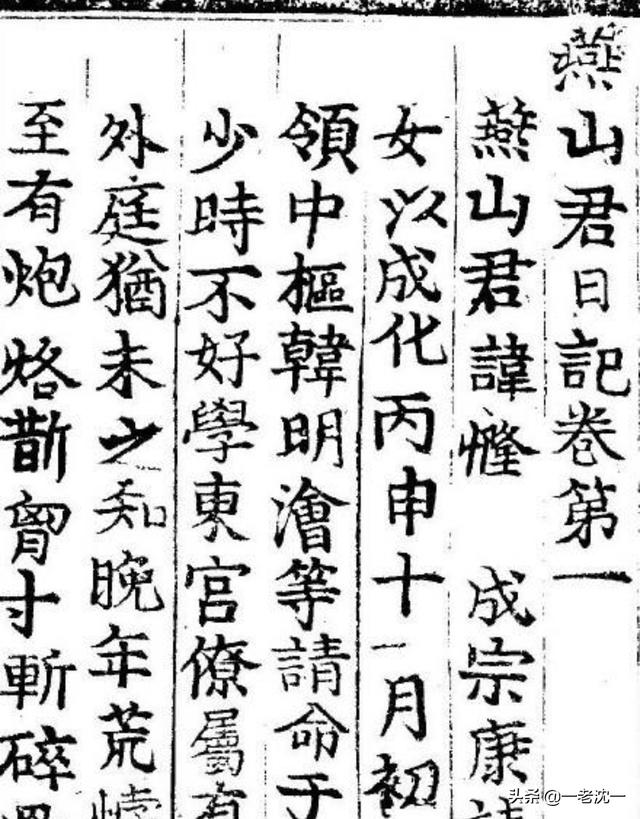 燕山君日記卷第一
燕山君諱㦕 成宗康靖
女以成化丙申十一月初
領中樞韓明澮等請命于
少時不好學東宮僚屬有
外庭猶未之知晚年荒
至有炮烙斮胷寸斬碎
头条 @一老沈一